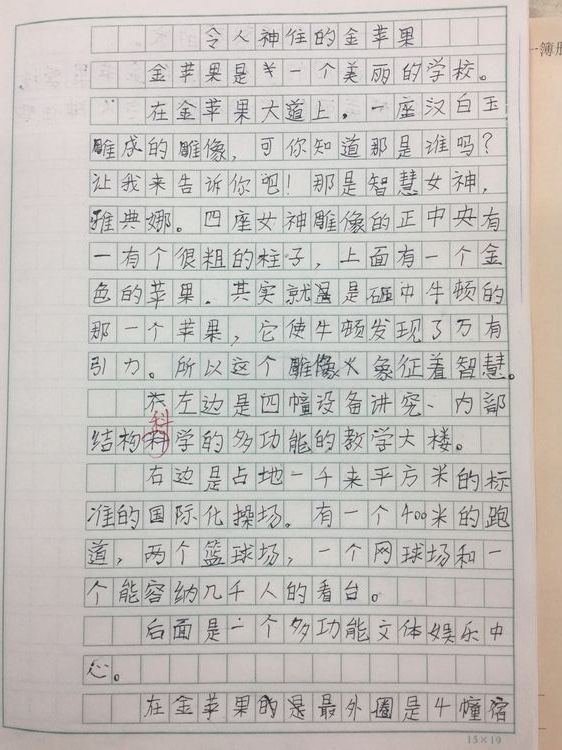 令人神住的金苹果
金苹果是一个美丽的学校。
在金苹果大道上，一座汉白玉
雕成的雕像，可你知道那是谁吗？
让我来告诉你吧！那是智慧女神，
雅典娜。四座女神雕像的正中央有
一有个很粗的柱子，上面有一个金
色的苹果．其实就是是砸中牛顿的
那一个苹果，它使牛顿发现了万有
引力。所以这个雕像象征着智慧。
左边是四幢设备讲究、内部
科
结构科学的多功能的教学大楼。
右边是占地一千来平方米的标
准的国际化操场。有一个400米的跑
道，两个篮球场，一个网球场和一
个能容纳几千人的看台。
后面是一个多功能文体娱乐中
心。
在金苹果的是最外圈是4幢宿
15×19
簿册